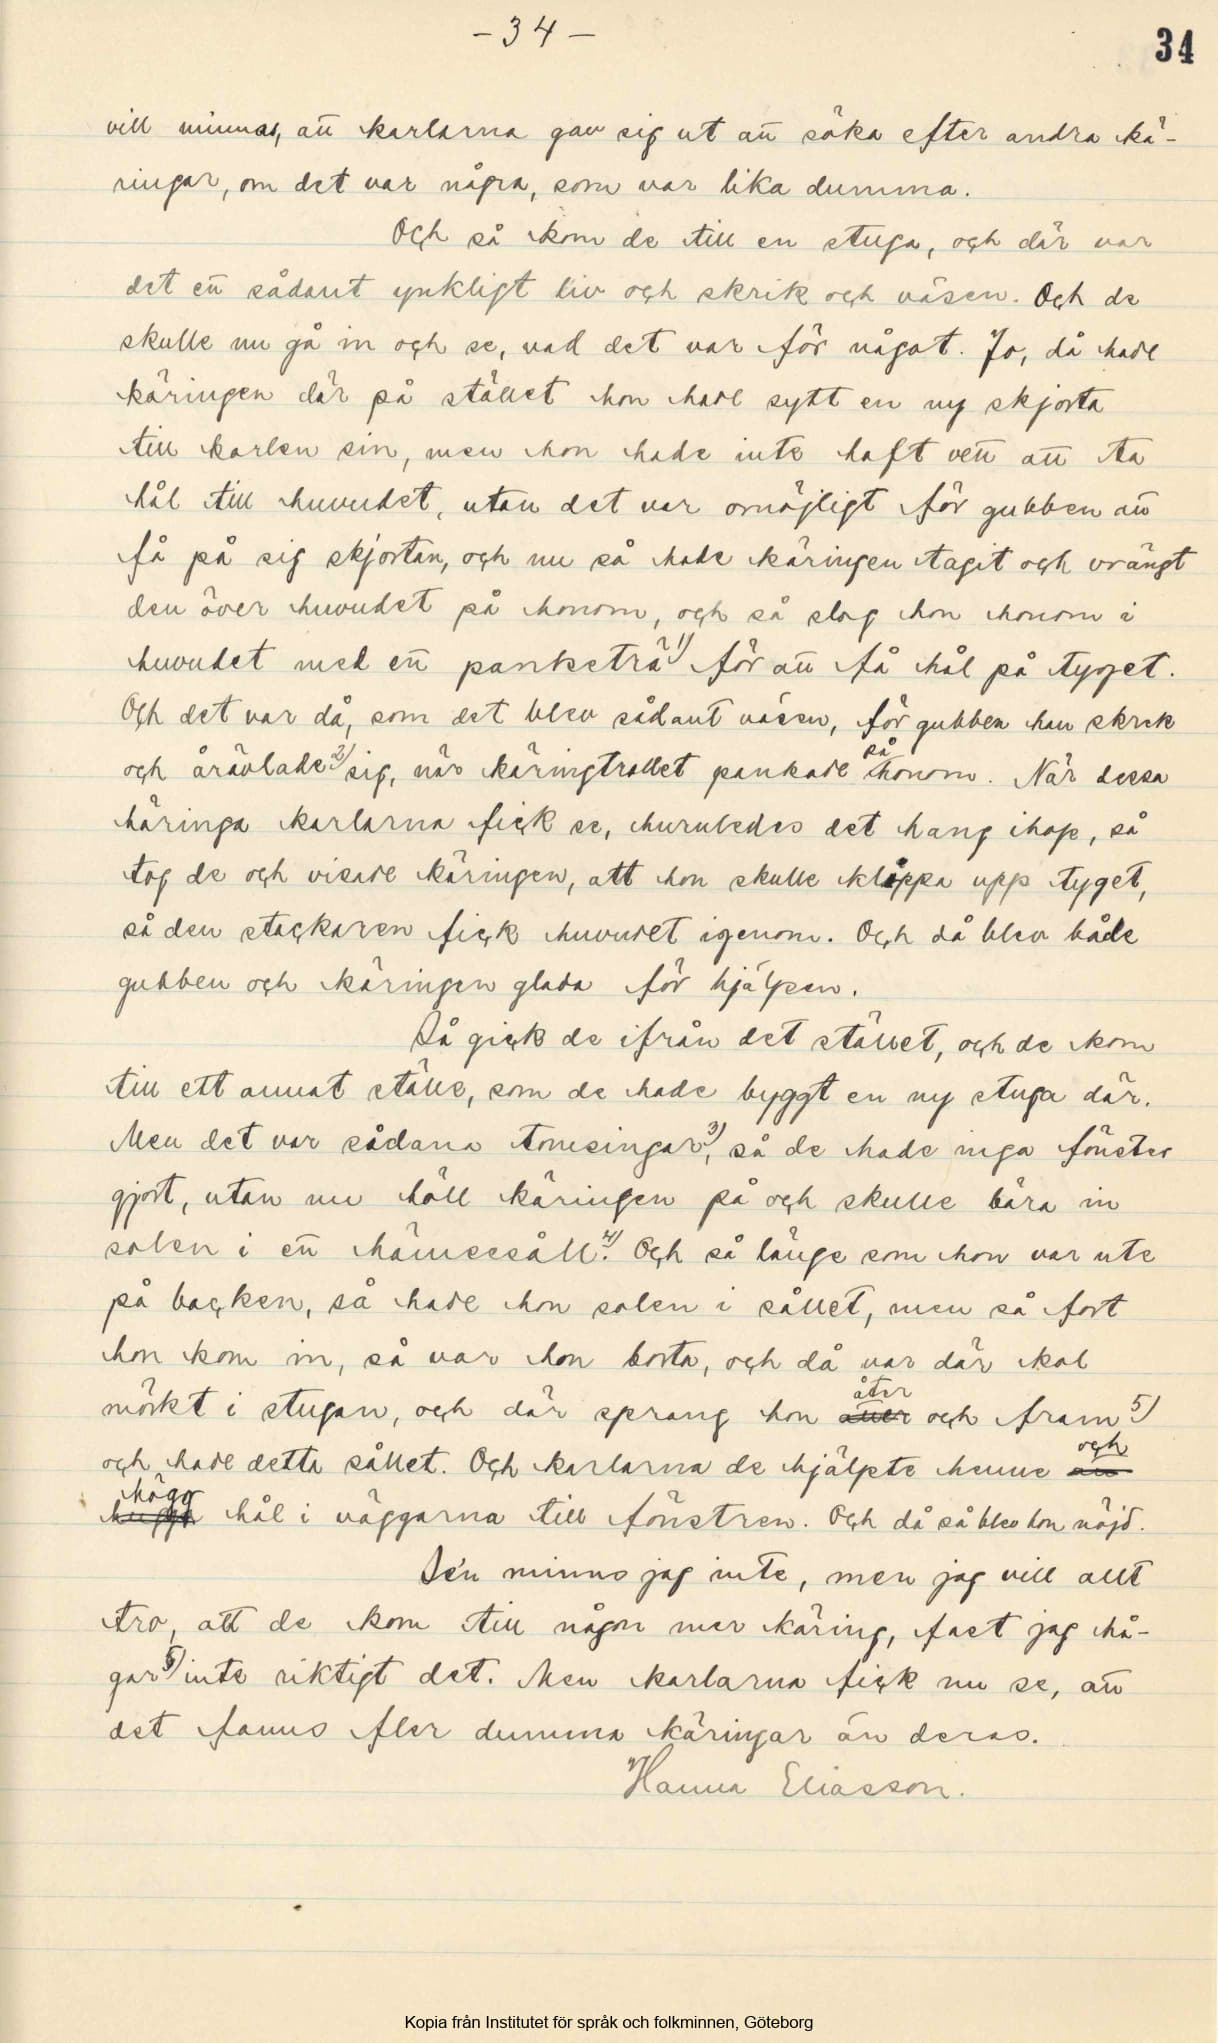 - 34 -
34
vill minnas, att karlarna gav sig ut att söka efter andra kä-
ringar, om det var några, som var lika dumma.
Och så kom de till en stuga, och där var
det ett sådant ynkligt liv och skrik och väsen. Och de
skulle nu gå in och se, vad det var för något. Jo, då hade
käringen där på stället hon hade sytt en ny skjorta
till karlen sin, men hon hade inte haft vett att ta
hål till huvudet, utan det var omöjligt för gubben att
få på sig skjortan, och nu så hade käringen tagit och vrängt
den över huvudet på honom, och så slog hon honom i
huvudet med ett panketrä 1) för att få hål på tyget.
Och det var då, som det blev sådant väsen, för gubben han skrek
och årävlade 2) sig, när käringtrollet pankade på honom. När dessa
häringa karlarna fick se, hurudedes det hang ihop, så
tog de och visade käringen, att hon skulle klippa upp tyget,
så den stackaren fick huvudet igenom. Och då blev både
gubben och käringen glada för hjälpen.
Så gick de ifrån det stället, och de kom
till ett annat ställe, som de hade byggt en ny stuga där.
Men det var sådana tomsingar 3), så de hade inga fönster
gjort, utan nu höll käringen på och skulle bära in
solen i ett hämsesåll 4). Och så länge som hon var ute
på backen, så hade hon solen i sållet, men så fort
hon kom in, så var hon borta, och då var där kol
mörkt i stugan, och där sprang hon åter och fram 5)
och hade detta sållet. Och karlarna de hjälpte henne och
högg hål i väggarna till fönstren. Och då så blev hon nöjd.
Se'n minns jag inte, men jag vill allt
tro, att de kom till någon mer käring, fast jag hå-
gar 6) inte riktigt det. Men karlarna fick nu se, att
det fanns fler dumma käringar än deras.
Hanna Eliasson.
Kopia från Institutet för språk och folkminnen, Göteborg